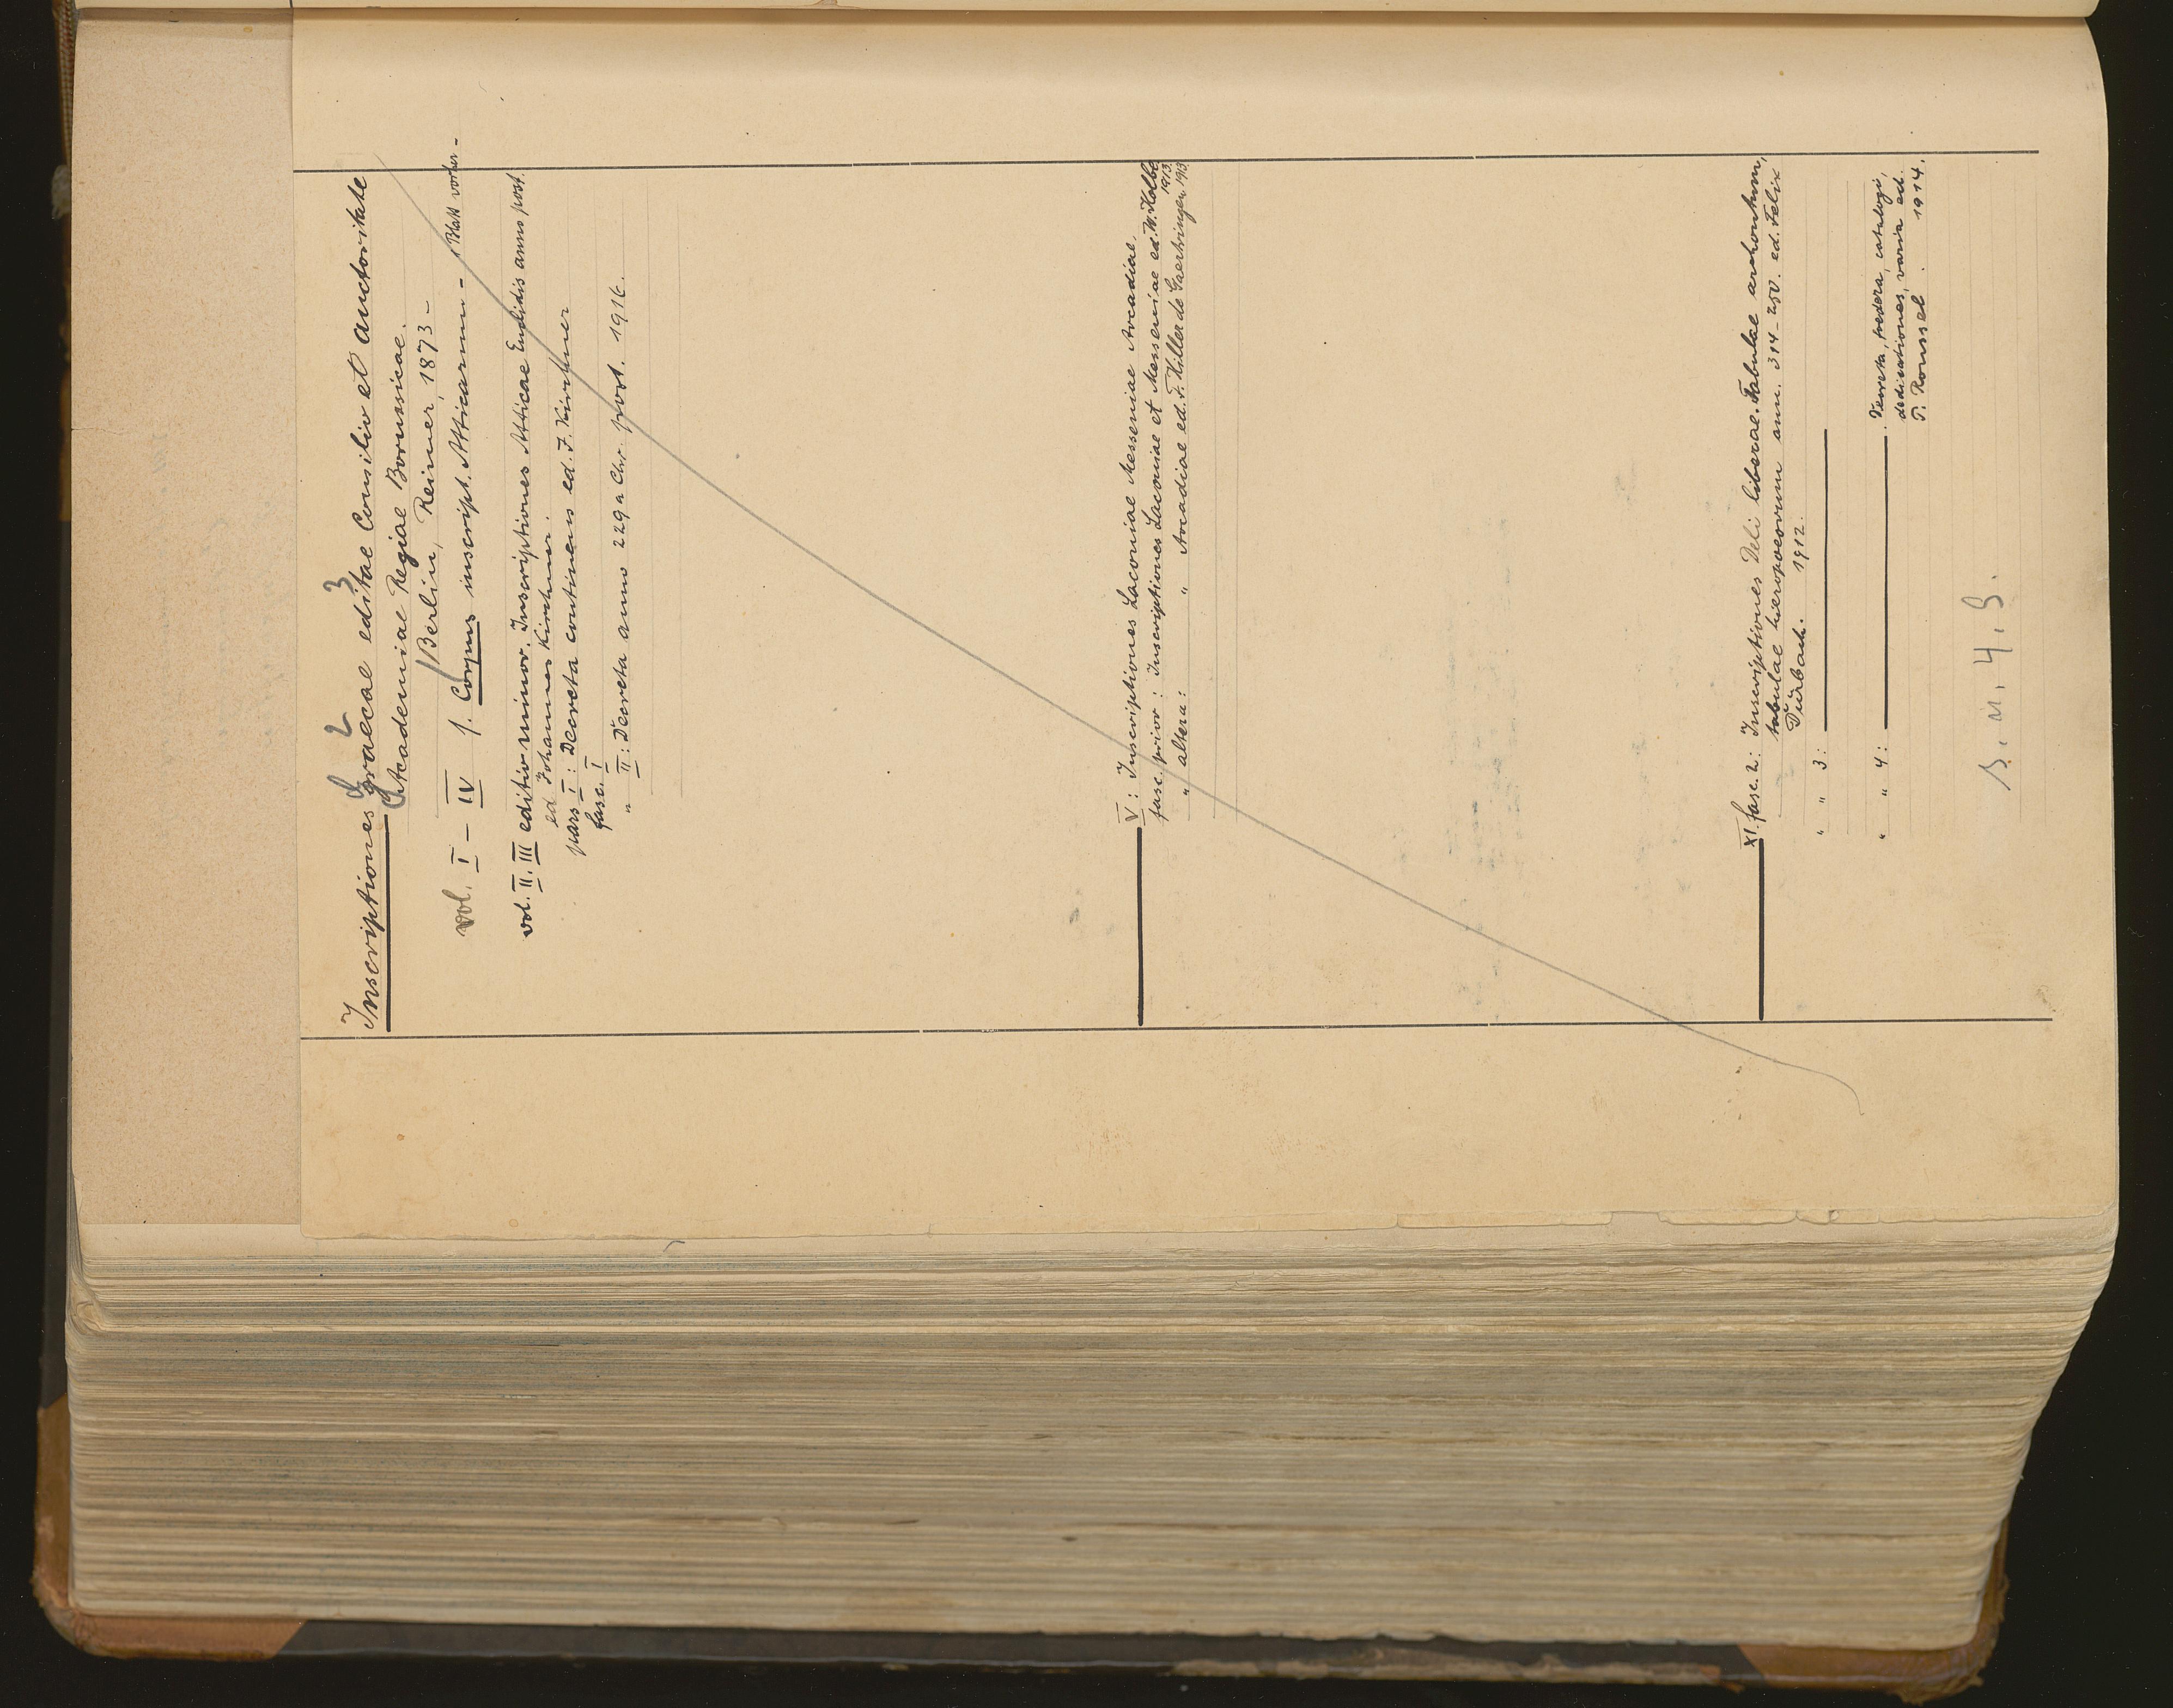 2 3
Inscriptiones Graecae editae Consilio et auctoritate
Academiae Regiae Borussicae.
Berlin, Reimer, 1873 -
vol. I - IV s. Corpus inscript. Atticarum - Blatt vorher -
vol. II. III editio minor. Inscriptiones Atticae Euclidis anno post.
ed Johannes Kirchner.
pars I: Decreta continens ed. J. Kirchner
fasc. I
" II: Decreta anno 229 a Chr. post. 1916.
V: Inscriptiones Laconiae Messeniae Arcadiae.
fasc. prior: Inscriptiones Laconiae et Messeniae ed. W. Kolbe 1913.
" altera: " Arcadiae ed. F. Hiller de Gaertringen 1913
XI. fasc. 2: Inscriptiones Deli liberae. Tabulae archontum,
tabulae hieropoeorum ann. 314-250. ed. Felix
Dürbach. 1912.
" " 3:
" " 4: Decreta, foedera, catalogi,
dedicationes, varia ed.
P. Roussel. 1914.